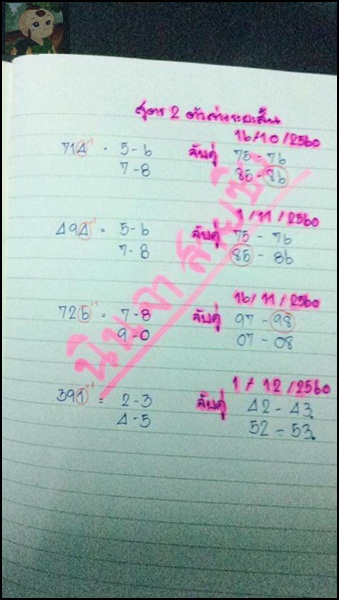 สูตร 2 ตัวล่าง
16/10/2560
714 = 5-6 จับคู่ 75-76
7-8 85-86
1/11/2560
494 = 5-6 จับคู่ 75-76
7-8 85-86
16/11/2560
726 = 7-8 จับคู่ 97-98
9-0 07-08
1/12/2560
391 = 2-3 จับคู่ 42-43
4-5 52-53